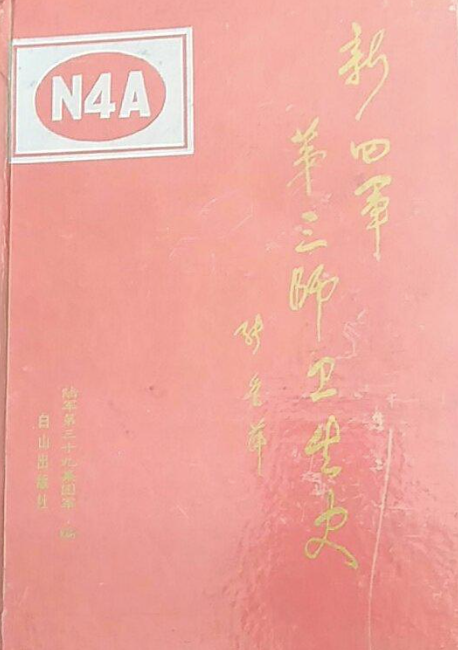 N4A
新四军
第三师卫生史
陆军第三十九集团军 编
白山出版社